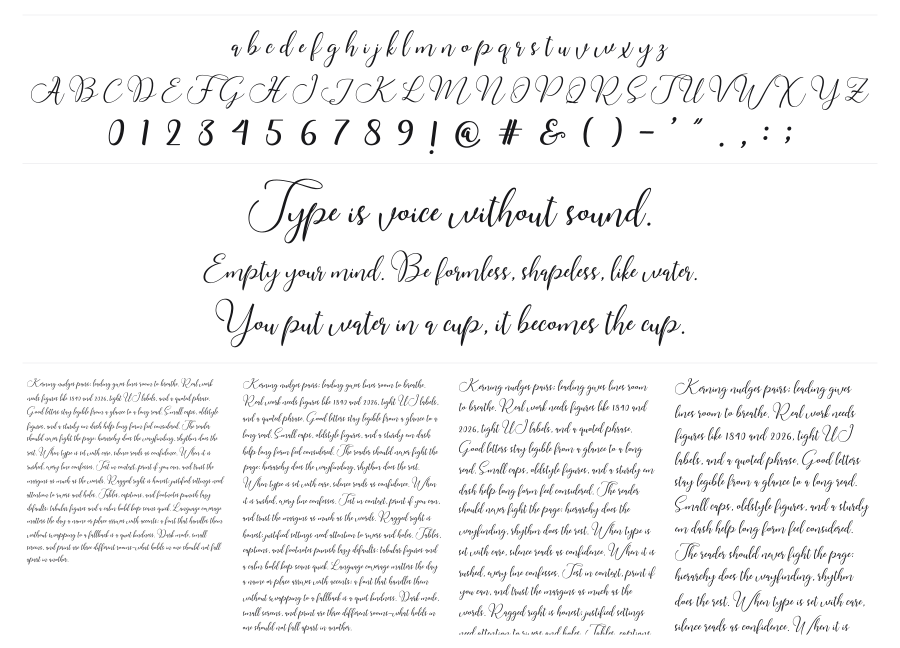 a b c d e f g h i j k l m n o p q r s t u v w x y z
A B C D E F G H I J K L M N O P Q R S T U V W X Y Z
0 1 2 3 4 5 6 7 8 9 ! @ # & ( ) - ' " . , : ;
Type is voice without sound.
Empty your mind. Be formless, shapeless, like water.
You put water in a cup, it becomes the cup.
Kerning nudges pairs; leading gives lines room to breathe. Real work
needs figures like 1840 and 2026, tight UI labels, and a quoted phrase.
Good letters stay legible from a glance to a long read. Small caps, oldstyle
figures, and a sturdy en dash help long form feel considered. The reader
should never fight the page: hierarchy does the wayfinding, rhythm does the
rest. When type is set with care, silence reads as confidence. When it is
rushed, every line confesses. Test in context, print if you can, and trust the
margins as much as the words. Ragged right is honest; justified settings need
attention to rivers and holes. Tables, captions, and footnotes punish lazy
defaults: tabular figures and a calm bold keep scans quick. Language coverage
matters the day a name or place arrives with accents; a font that handles them
without swapping to a fallback is a quiet kindness. Dark mode, small
screens, and print are three different rooms—what holds in one should not fall
apart in another.
Kerning nudges pairs; leading gives lines room to breathe.
Real work needs figures like 1840 and 2026, tight UI labels,
and a quoted phrase. Good letters stay legible from a glance to a
long read. Small caps, oldstyle figures, and a sturdy en dash
help long form feel considered. The reader should never fight the
page: hierarchy does the wayfinding, rhythm does the rest.
When type is set with care, silence reads as confidence. When
it is rushed, every line confesses. Test in context, print if you can,
and trust the margins as much as the words. Ragged right is
honest; justified settings need attention to rivers and holes. Tables,
captions, and footnotes punish lazy defaults: tabular figures and
a calm bold keep scans quick. Language coverage matters the day
a name or place arrives with accents; a font that handles them
without swapping to a fallback is a quiet kindness. Dark mode,
small screens, and print are three different rooms—what holds in
one should not fall apart in another.
Kerning nudges pairs; leading gives lines room
to breathe. Real work needs figures like 1840 and
2026, tight UI labels, and a quoted phrase.
Good letters stay legible from a glance to a long
read. Small caps, oldstyle figures, and a sturdy en
dash help long form feel considered. The reader
should never fight the page: hierarchy does the
wayfinding, rhythm does the rest. When type is
set with care, silence reads as confidence. When it is
rushed, every line confesses. Test in context, print if
you can, and trust the margins as much as the
words. Ragged right is honest; justified settings
need attention to rivers and holes. Tables, captions,
Kerning nudges pairs; leading gives
lines room to breathe. Real work needs
figures like 1840 and 2026, tight UI
labels, and a quoted phrase. Good letters
stay legible from a glance to a long read.
Small caps, oldstyle figures, and a sturdy
en dash help long form feel considered.
The reader should never fight the page:
hierarchy does the wayfinding, rhythm
does the rest. When type is set with care,
silence reads as confidence. When it is